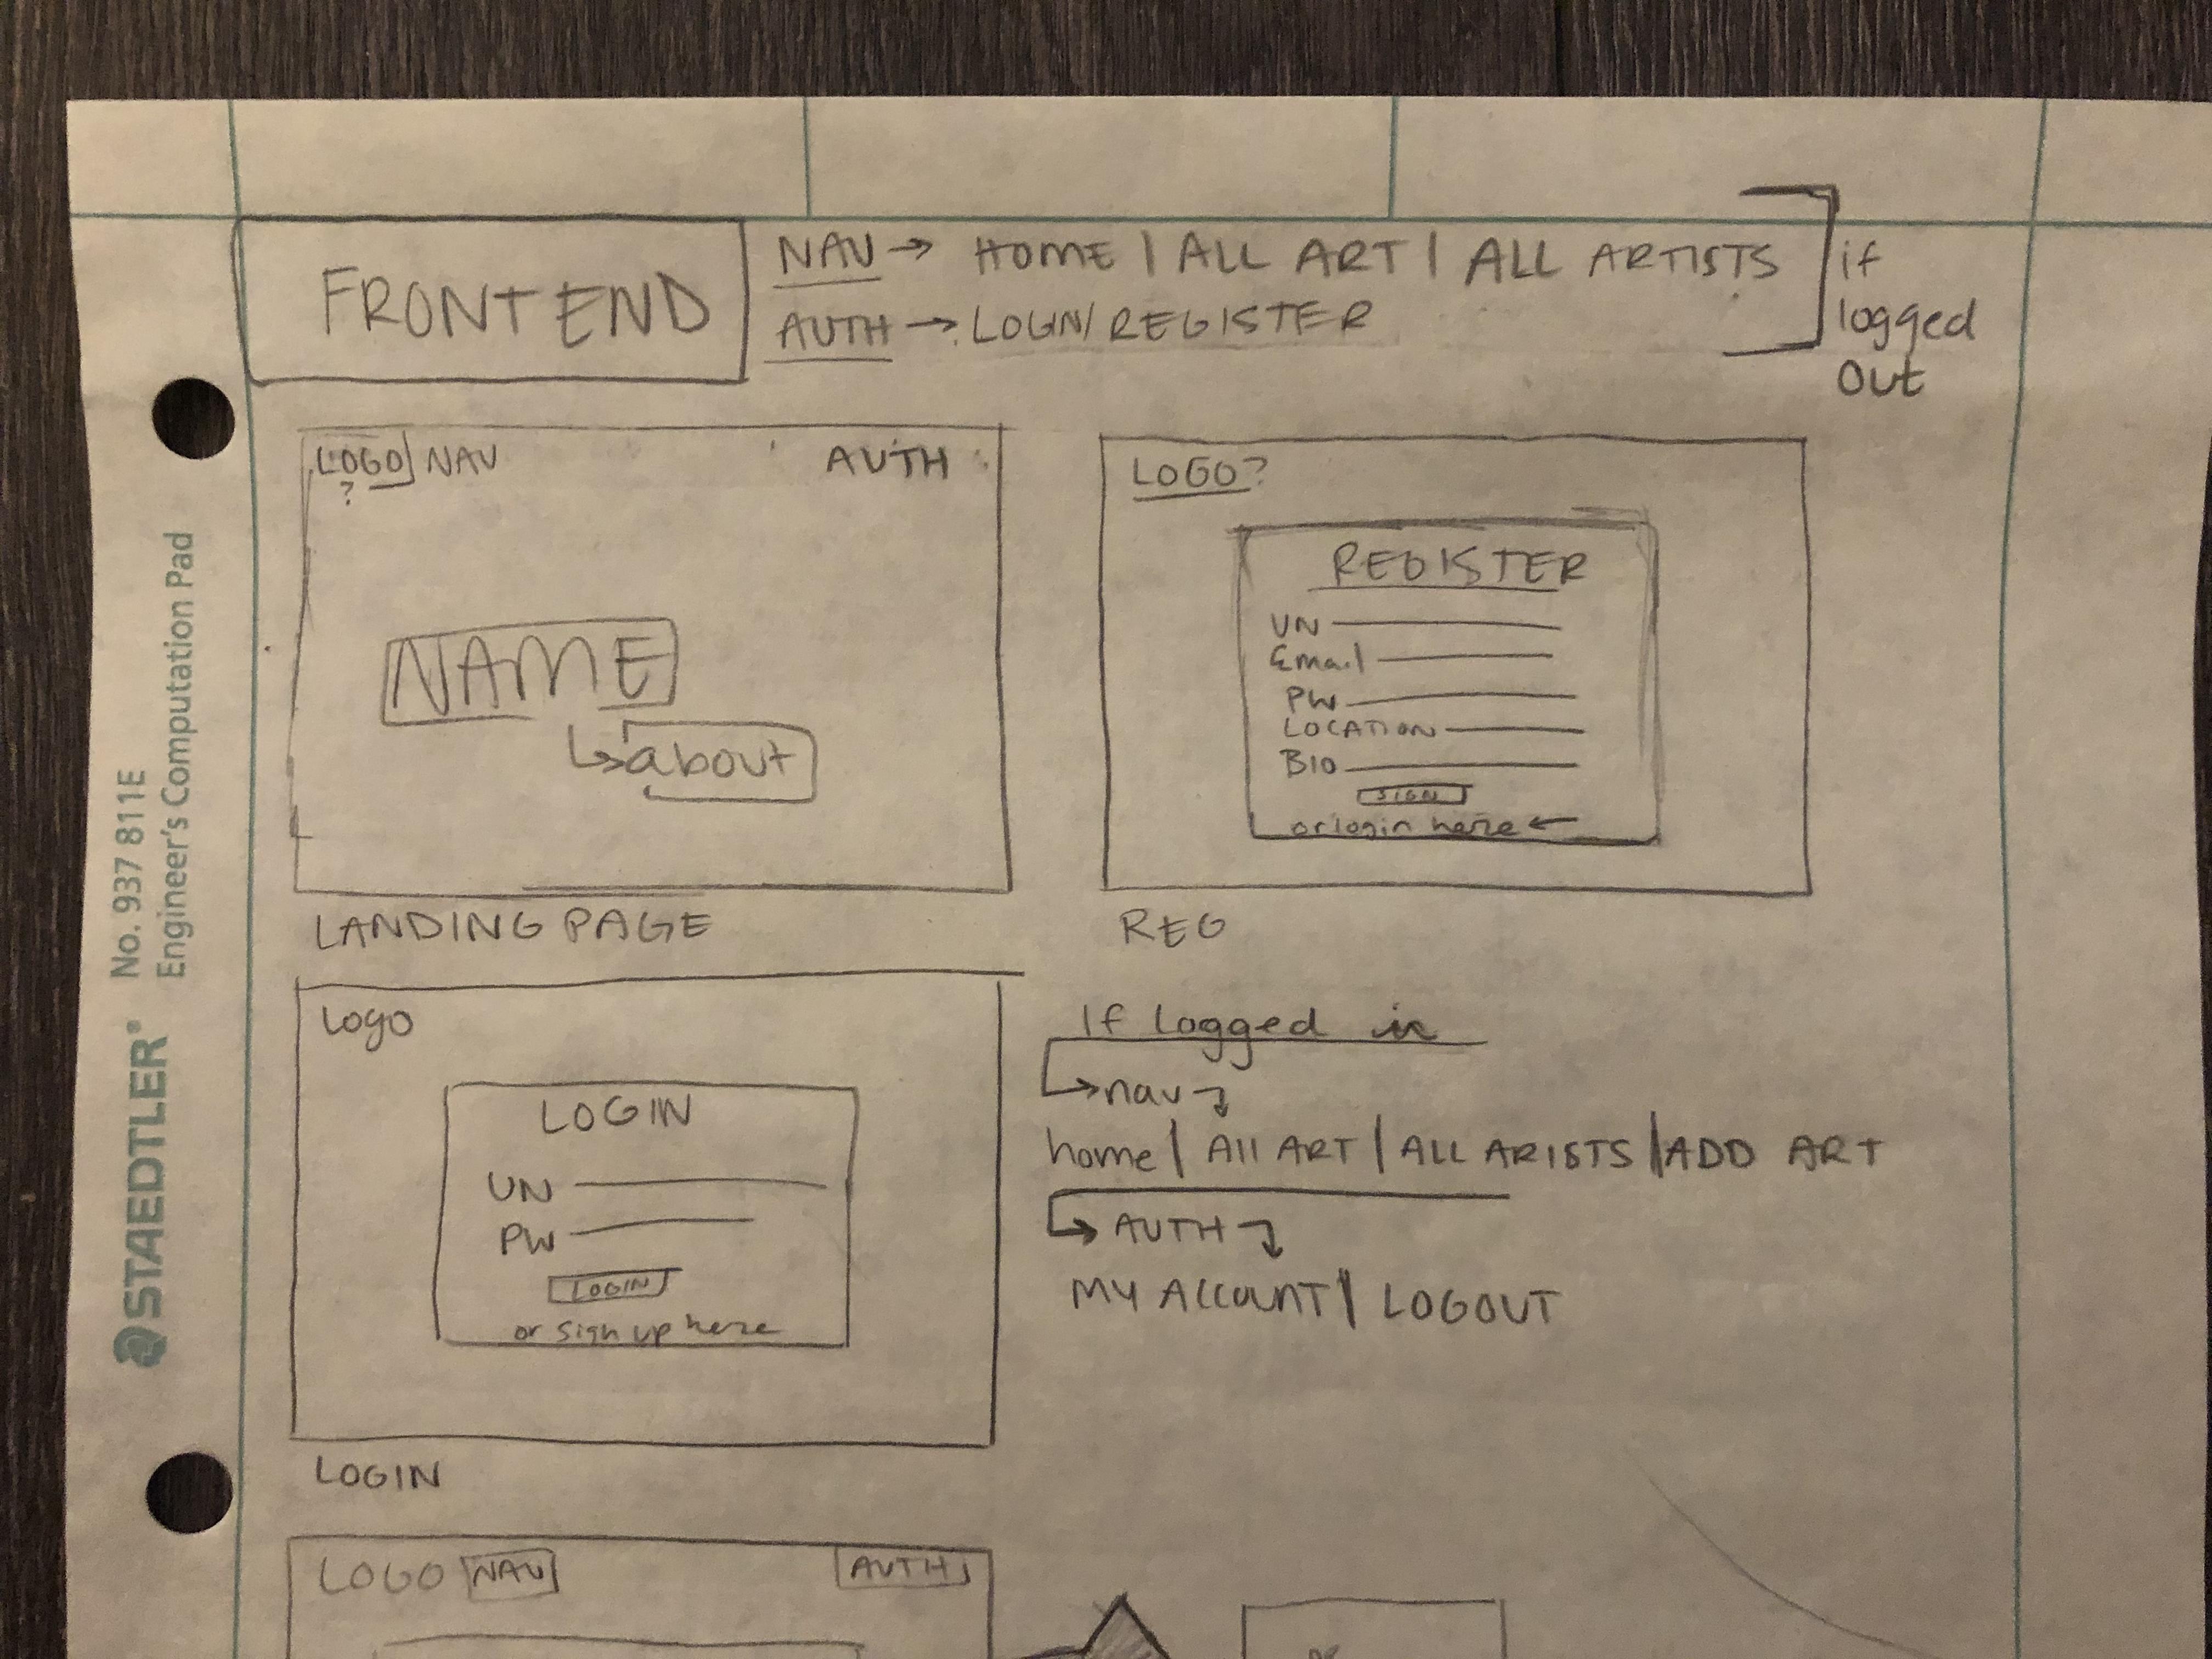 FRONTEND
NAV → HOME | ALL ART | ALL ARTISTS
AUTH → LOGIN/REGISTER
if
logged
out
LOGO NAV AUTH
?
NAME
↳ about
LANDING PAGE
LOGO?
REGISTER
UN
Email
PW
LOCATION
BIO
SIGN
or login here ←
REG
Logo
LOGIN
UN
PW
LOGIN
or sign up here
LOGIN
If logged in
↳ nav ↴
home | All ART | ALL ARISTS | ADD ART
↳ AUTH ↴
MY ACCOUNT | LOGOUT
LOGO NAV AUTH
No. 937 811E
Engineer's Computation Pad
STAEDTLER®